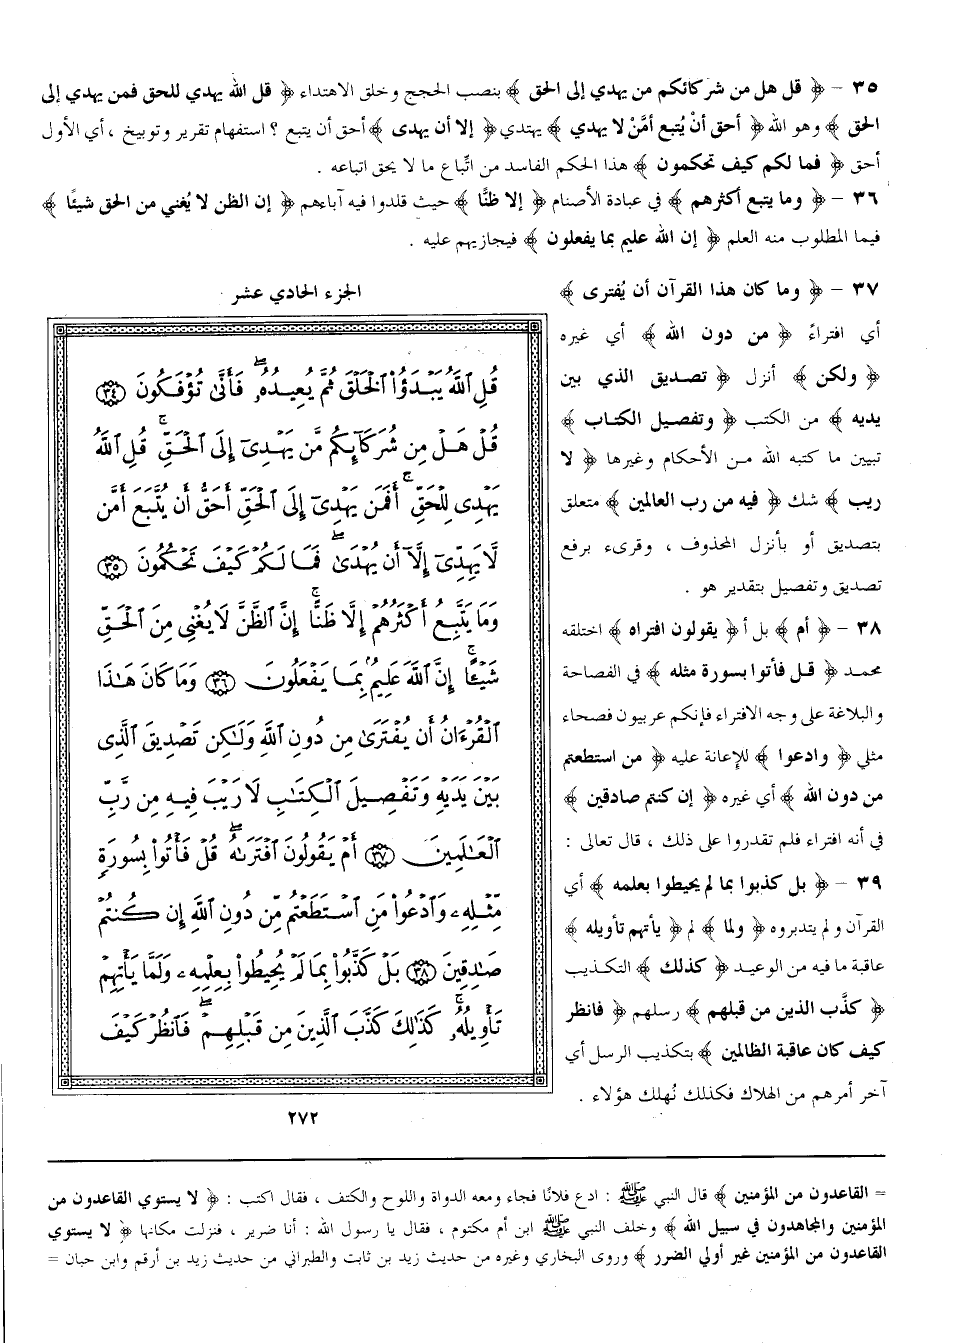 ٣٥ – ﴿ قل هل من شركائكم من يهدي إلى الحق ﴾ بنصب الحجج وخلق الاهتداء ﴿ قل الله يهدي للحق فمن يهدي إلى
الحق ﴾ وهو الله ﴿ أحق أنْ يُتبع أمَّنْ لا يهدي ﴾ يهتدي ﴿ إلا أن يهدى ﴾ أحق أن يتبع ؟ استفهام تقرير وتوبيخ ، أي الأول
أحق ﴿ فما لكم كيف تحكمون ﴾ هذا الحكم الفاسد من اتِّباع ما لا يحق اتباعه .
٣٦ – ﴿ وما يتبع أكثرهم ﴾ في عبادة الأصنام ﴿ إلا ظنًّا ﴾ حيث قلدوا فيه آباءهم ﴿ إن الظن لا يُغني من الحق شيئًا ﴾
فيما المطلوب منه العلم ﴿ إن الله عليم بما يفعلون ﴾ فيجازيهم عليه .
٣٧ – ﴿ وما كان هذا القرآن أن يُفترى ﴾
أي افتراءً ﴿ من دون الله ﴾ أي غيره
﴿ ولكن ﴾ أنزل ﴿ تصديق الذي بين
يديه ﴾ من الكتب ﴿ وتفصيل الكتاب ﴾
تبيين ما كتبه الله من الأحكام وغيرها ﴿ لا
ريب ﴾ شك ﴿ فيه من رب العالمين ﴾ متعلق
بتصديق أو بأنزل المحذوف ، وقرىء برفع
تصديق وتفصيل بتقدير هو .
٣٨ – ﴿ أم ﴾ بل أ ﴿ يقولون افتراه ﴾ اختلقه
محمد ﴿ قل فأتوا بسورة مثله ﴾ في الفصاحة
والبلاغة على وجه الافتراء فإنكم عربيون فصحاء
مثلي ﴿ وادعوا ﴾ للإعانة عليه ﴿ من استطعتم
من دون الله ﴾ أي غيره ﴿ إن كنتم صادقين ﴾
في أنه افتراء فلم تقدروا على ذلك ، قال تعالى :
٣٩ – ﴿ بل كذبوا بما لم يحيطوا بعلمه ﴾ أي
القرآن ولم يتدبروه ﴿ ولما ﴾ لم ﴿ يأتهم تأويله ﴾
عاقبة ما فيه من الوعيد ﴿ كذلك ﴾ التكذيب
﴿ كذَّب الذين من قبلهم ﴾ رسلهم ﴿ فانظر
كيف كان عاقبة الظالمين ﴾ بتكذيب الرسل أي
آخر أمرهم من الهلاك فكذلك نُهلك هؤلاء .
الجزء الحادي عشر
قُلِ ٱللَّهُ يَبْدَؤُا۟ ٱلْخَلْقَ ثُمَّ يُعِيدُهُۥ ۖ فَأَنَّىٰ تُؤْفَكُونَ ٣٤
قُلْ هَلْ مِن شُرَكَآئِكُم مَّن يَهْدِىٓ إِلَى ٱلْحَقِّ ۚ قُلِ ٱللَّهُ
يَهْدِى لِلْحَقِّ ۗ أَفَمَن يَهْدِىٓ إِلَى ٱلْحَقِّ أَحَقُّ أَن يُتَّبَعَ أَمَّن
لَّا يَهِدِّىٓ إِلَّآ أَن يُهْدَىٰ ۖ فَمَا لَكُمْ كَيْفَ تَحْكُمُونَ ٣٥
وَمَا يَتَّبِعُ أَكْثَرُهُمْ إِلَّا ظَنًّا ۚ إِنَّ ٱلظَّنَّ لَا يُغْنِى مِنَ ٱلْحَقِّ
شَيْـًٔا ۚ إِنَّ ٱللَّهَ عَلِيمٌۢ بِمَا يَفْعَلُونَ ٣٦ وَمَا كَانَ هَٰذَا
ٱلْقُرْءَانُ أَن يُفْتَرَىٰ مِن دُونِ ٱللَّهِ وَلَٰكِن تَصْدِيقَ ٱلَّذِى
بَيْنَ يَدَيْهِ وَتَفْصِيلَ ٱلْكِتَٰبِ لَا رَيْبَ فِيهِ مِن رَّبِّ
ٱلْعَٰلَمِينَ ٣٧ أَمْ يَقُولُونَ ٱفْتَرَىٰهُ ۖ قُلْ فَأْتُوا۟ بِسُورَةٍ
مِّثْلِهِۦ وَٱدْعُوا۟ مَنِ ٱسْتَطَعْتُم مِّن دُونِ ٱللَّهِ إِن كُنتُمْ
صَٰدِقِينَ ٣٨ بَلْ كَذَّبُوا۟ بِمَا لَمْ يُحِيطُوا۟ بِعِلْمِهِۦ وَلَمَّا يَأْتِهِمْ
تَأْوِيلُهُۥ ۚ كَذَٰلِكَ كَذَّبَ ٱلَّذِينَ مِن قَبْلِهِمْ ۖ فَٱنظُرْ كَيْفَ
٢٧٢
= القاعدون من المؤمنين ﴾ قال النبي ﷺ : ادع فلانًا فجاء ومعه الدواة واللوح والكتف ، فقال اكتب : ﴿ لا يستوي القاعدون من
المؤمنين والمجاهدون في سبيل الله ﴾ وخلف النبي ﷺ ابن أم مكتوم ، فقال يا رسول الله : أنا ضرير ، فنزلت مكانها ﴿ لا يستوي
القاعدون من المؤمنين غير أولي الضرر ﴾ وروى البخاري وغيره من حديث زيد بن ثابت والطبراني من حديث زيد بن أرقم وابن حبان =